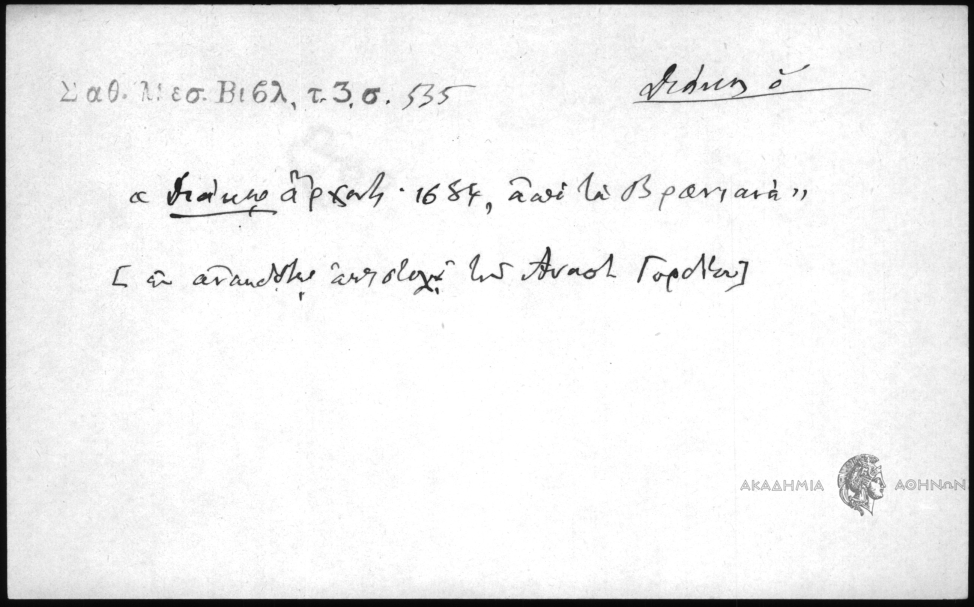 Σαθ. Μεσ. Βιβλ, τ. 3, σ. 535
Διάκος ὁ
« Διάκος ἄρχοντ · 1684, ἀπὸ τὰ Βρανιανά »
[ ἐν ἀνεκδότῳ ἐπιστολῇ τοῦ Ἀναστ Γορδίου]
ΑΚΑΔΗΜΙΑ ΑΘΗΝΩΝ